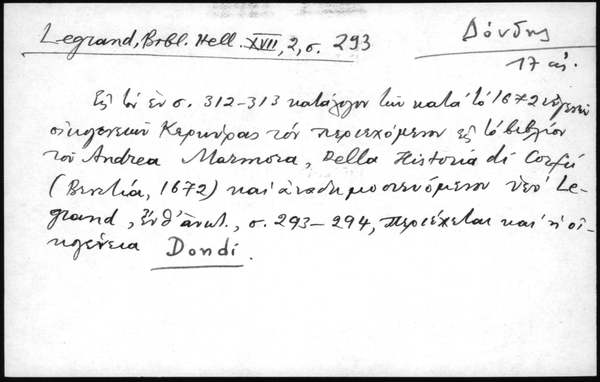 Legrand, Bibl. Hell. XVII, 2, σ. 293
Δόνδης
17 αἰ.
Εἰς τὸν ἐν σ. 312-313 κατάλογον τῶν κατὰ τὸ 1672 εὐγενῶν
οἰκογενειῶν Κερκύρας τὸν περιεχόμενον εἰς τὸ βιβλίον
τοῦ Andrea Marmora, Della Historia di Corfù
(Βενετία, 1672) καὶ ἀναδημοσιευόμενον ὑπὸ Le-
grand, ἔνθ' ἀνωτ., σ. 293-294, περιέχεται καὶ ἡ οἰ-
κογένεια Dondi.